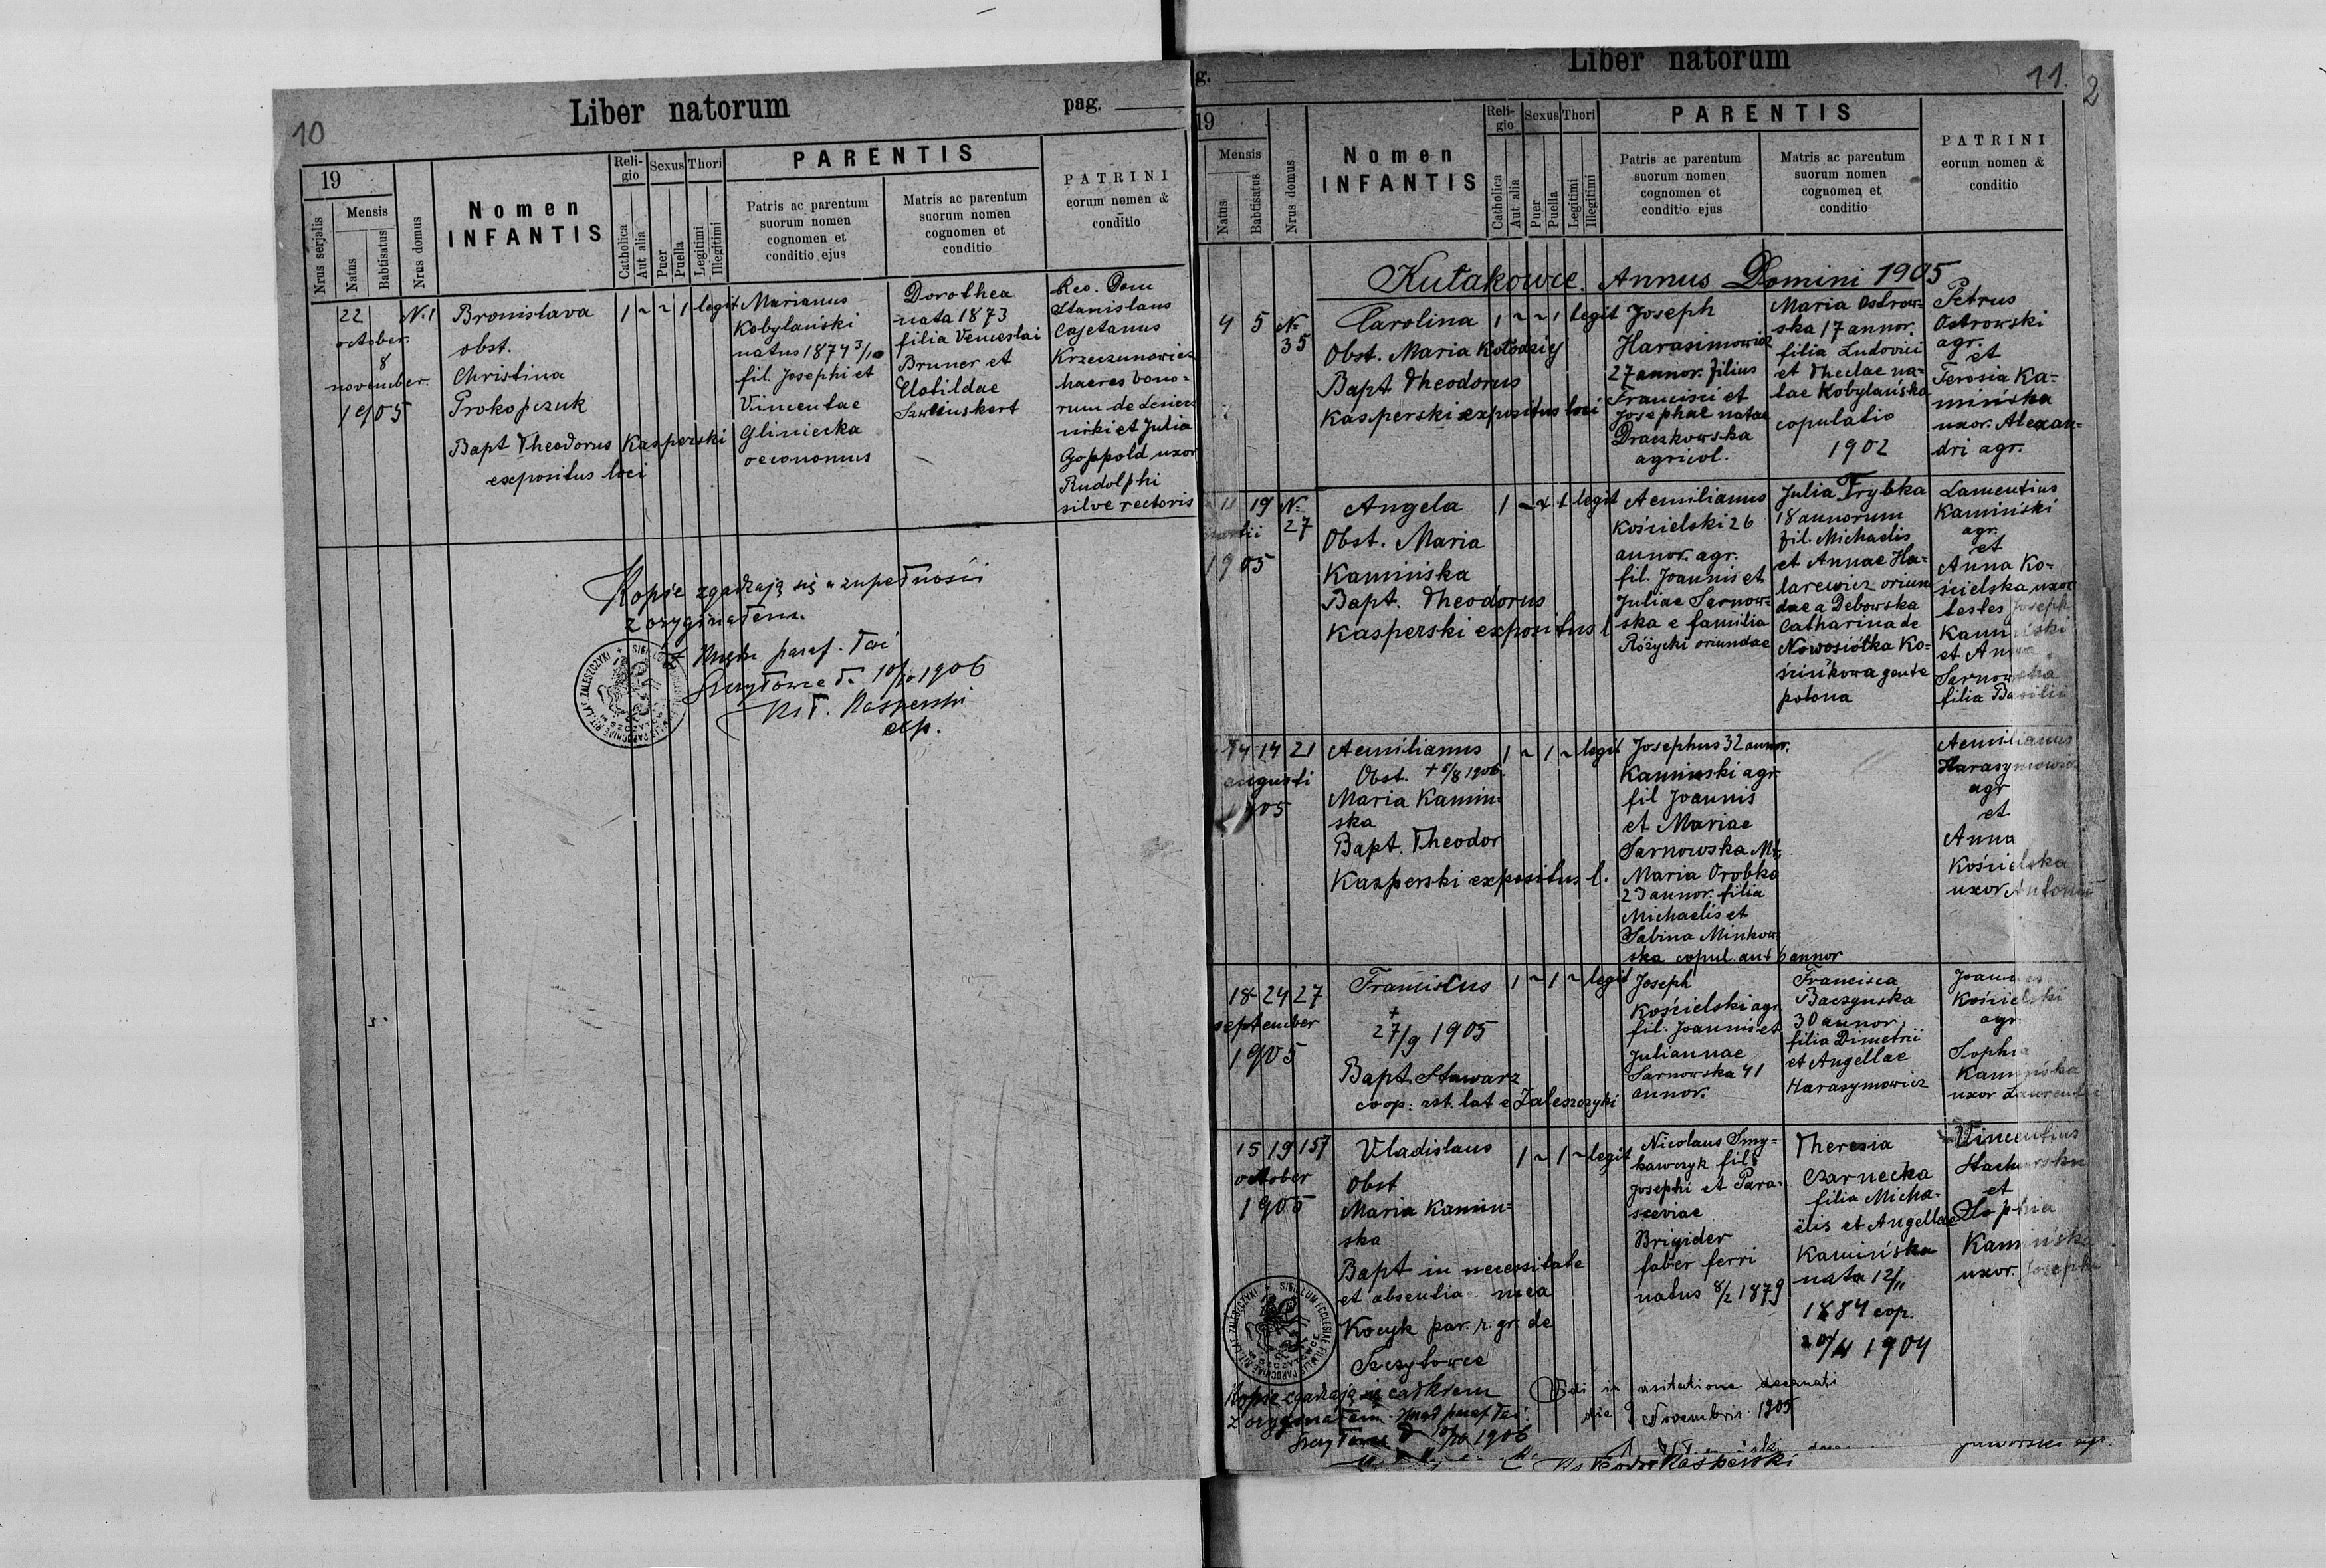 10
Liber natorum
pag.
19
Nrus serjalis
Mensis
Natus
Babtisatus
Nrus domus
Nomen
INFANTIS
Reli-
gio
Catholica
Aut alia
Sexus
Puer
Puella
Thori
Legitimi
Illegitimi
PARENTIS
Patris ac parentum
suorum nomen
cognomen et
conditio ejus
Matris ac parentum
suorum nomen
cognomen et
conditio
PATRINI
eorum nomen &
conditio
22
october.
8
november.
1905
N. 1
Bronislava
obst.
Christina
Prokopczuk
Bapt Theodorus Kasperski
expositus loci
1 ~ ~ 1 legit
Marianus
Kobylański
natus 1874 3/10
fil. Josephi et
Vincentae
Gliniecka
oeconomus
Dorothea
nata 1873
filia Venceslai
Bruner et
Clotildae
Reo. Dom
Stanislaus
Cajetanus
Krzeczunowicz
haeres bono-
rum de
et Julia
Goppold uxor
Rudolphi
silve rectoris
Kopie zgadzają się w zupełności
z oryginałem.
Urząd paraf. łaci
10/10 1906
Ks T. Kasperski
exp.
g.
Liber natorum
11.
2
19
Mensis
Natus
Babtisatus
Nrus domus
Nomen
INFANTIS
Reli-
gio
Catholica
Aut alia
Sexus
Puer
Puella
Thori
Legitimi
Illegitimi
PARENTIS
Patris ac parentum
suorum nomen
cognomen et
conditio ejus
Matris ac parentum
suorum nomen
cognomen et
conditio
PATRINI
eorum nomen &
conditio
Kułakowce. Annus Domini 1905
4 5 N=
35
Carolina
Obst. Maria Kołodziej
Bapt Theodorus
Kasperski expositus loci
1 ~ ~ 1 legit
Joseph
Harasimowicz
27 annor. filius
Francisci et
Josephae natae
Draczkowska
agricol.
Maria Ostrow-
ska 17 annor.
filia Ludovici
et Theclae na-
tae Kobylańska
copulatio
1902
Petrus
Ostrowski
agr.
et
Terosia Ka-
mińska
uxor. Alexan-
dri agr.
11 19 N=
27
1905
Angela
Obst. Maria
Kamińska
Bapt. Theodorus
Kasperski expositus l
1 legit
Aemilianus
Kościelski 26
annor. agr.
fil. Joannis et
Juliae Sarnow-
ska e familia
Różycki oriundae
Julia Trybka
18 annorum
fil. Michaelis
et Annae Ha-
larewicz oriun
dae a Debowska
Catharina de
Nowosiółka Ko-
ściukowa gente
polona
Lamentius
Kamiński
agr.
et
Anna Ko-
ścielska uxor
testes Joseph
Kamiński
et Anna
Sarnowska
filia Basilii
14 14 21
augusti
1905
Aemilianus
Obst. + 6/8 1906.
Maria Kamin-
ska
Bapt. Theodor
Kasperski expositus l.
1 ~ 1 ~ legit
Josephus 32 annor.
Kaminski agr
fil Joannis
et Mariae
Sarnowska Mt.
Maria Orobko
23 annor. filia
Michaelis et
Sabina Minkow-
ska copul. ant 6 annor
Aemilianus
Harasymowicz
agr
et
Anna
Kościelska
uxor Antonii
18 24 27
september
1905
Franciscus
+
27/9 1905
Bapt. Stawarz
coop: rit. lat e Zaleszczyki
1 ~ 1 ~ legit
Joseph
Kościelski agr
fil. Joannis et
Juliannae
Sarnowska 41
annor.
Francisca
Baczynska
30 annor.
filia Dimetrii
et Angellae
Harasymowicz
Joannes
Kościelski
agr.
Sophia
Kamińska
uxor Laurentii
15 19 157
october
1905
Vladislaus
Obst
Maria Kamin-
ska
Bapt in necessitate
et absentia mea
Kocyk par. r. gr. de
Szczytowce
1 ~ 1 ~ legit
Nicolaus Smy-
kawczyk fil.
Josephi et Para-
sceviae
Brigider
faber ferri
natus 8/2 1879
Theresia
Czarnecka
filia Micha-
ëlis et Angellae
Kamińska
nata 12/11
1884 cop.
1904
Vincentius
et
Sophia
Kamińska
uxor. Josephi
Kopie zgadzają się całkiem
z oryginałem Urząd paraf łaci.
10/10 1906
Vidi in visitatione decanali
die 9 Novembris 1905
Kasperski